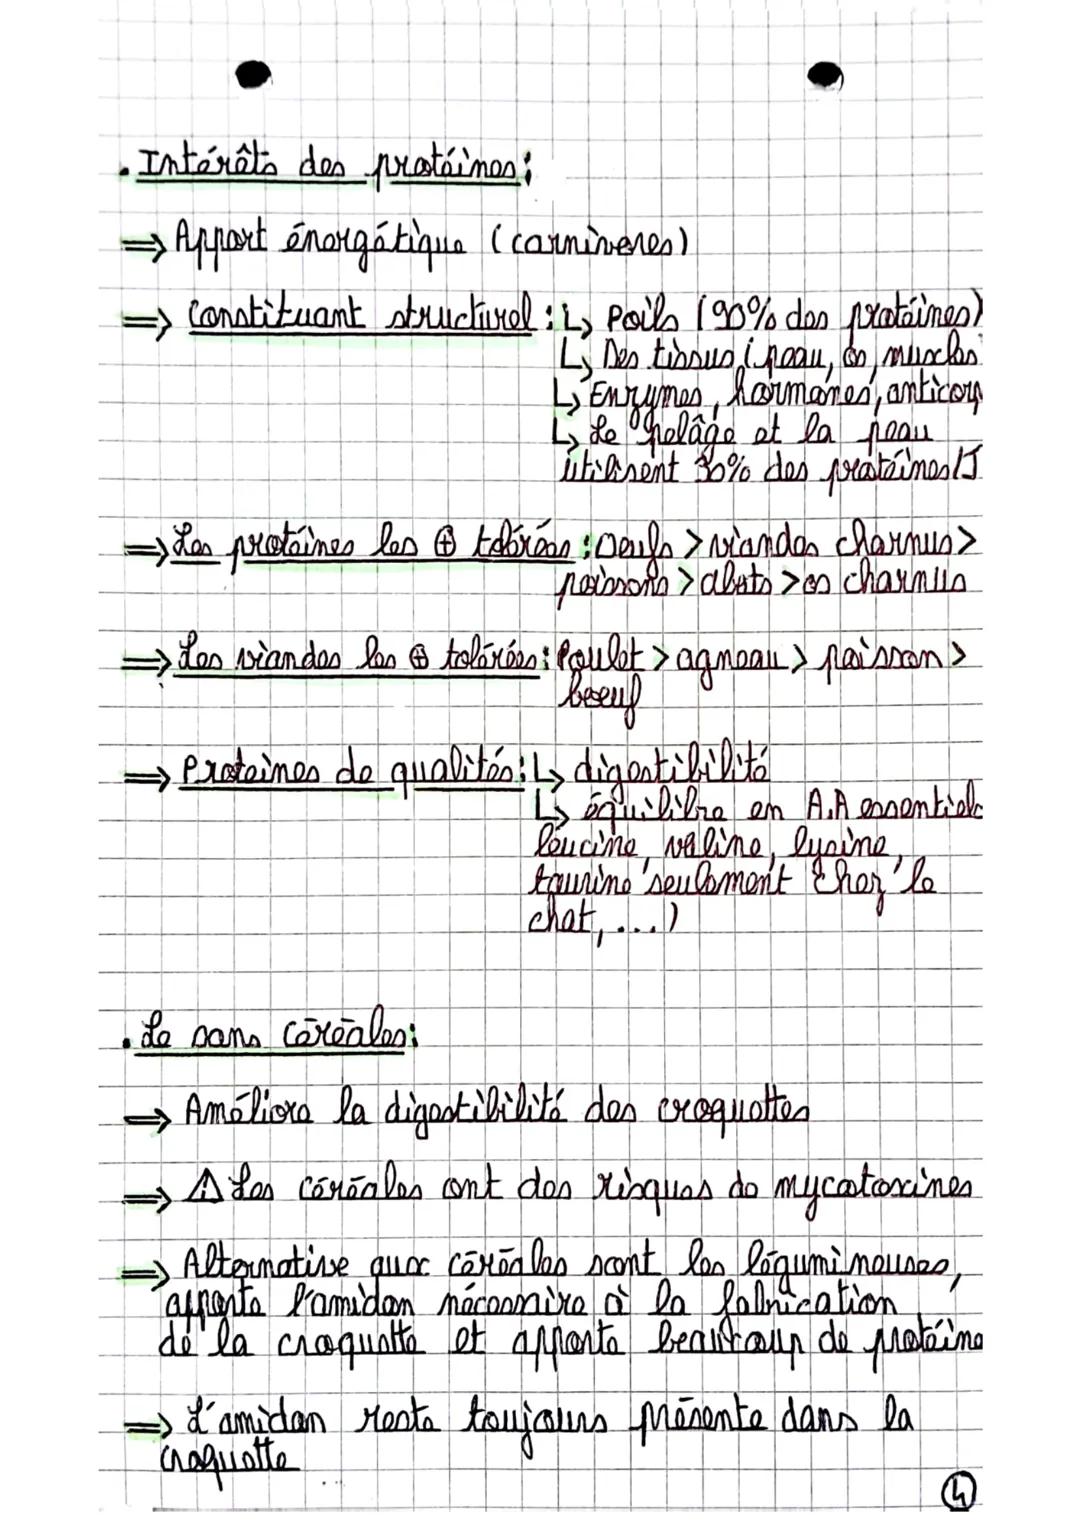 • Intérêts des protéines :
⇒ Apport énergétique (carnivores)
⇒ Constituant structurel : ↳ Poils (90% des protéines)
↳ Des tissus (peau, os, muscles
↳ Enzymes, hormones, anticorp
↳ Le pelâge et la peau
utilisent 30% des protéines/J
⇒ Les protéines les ⊕ tolérées : Oeufs > viandes charnus >
poissons > abats > os charnus
⇒ Les viandes les ⊕ tolérées : Poulet > agneau > poisson >
boeuf
⇒ Proteines de qualités : ↳ digestibilité
↳ équilibre en A.A essentiels
leucine, valine, lysine,
taurine seulement chez le
chat, ...)
• Le sans céréales :
⇒ Améliore la digestibilité des croquettes
⇒ ⚠ Les céréales ont des risques de mycotoxines
⇒ Alternative aux céréales sont les légumineuses,
apporte l'amidon nécessaire à la fabrication
de la croquette et apporte beaucoup de protéine
⇒ L'amidon reste toujours présente dans la
croquette
4